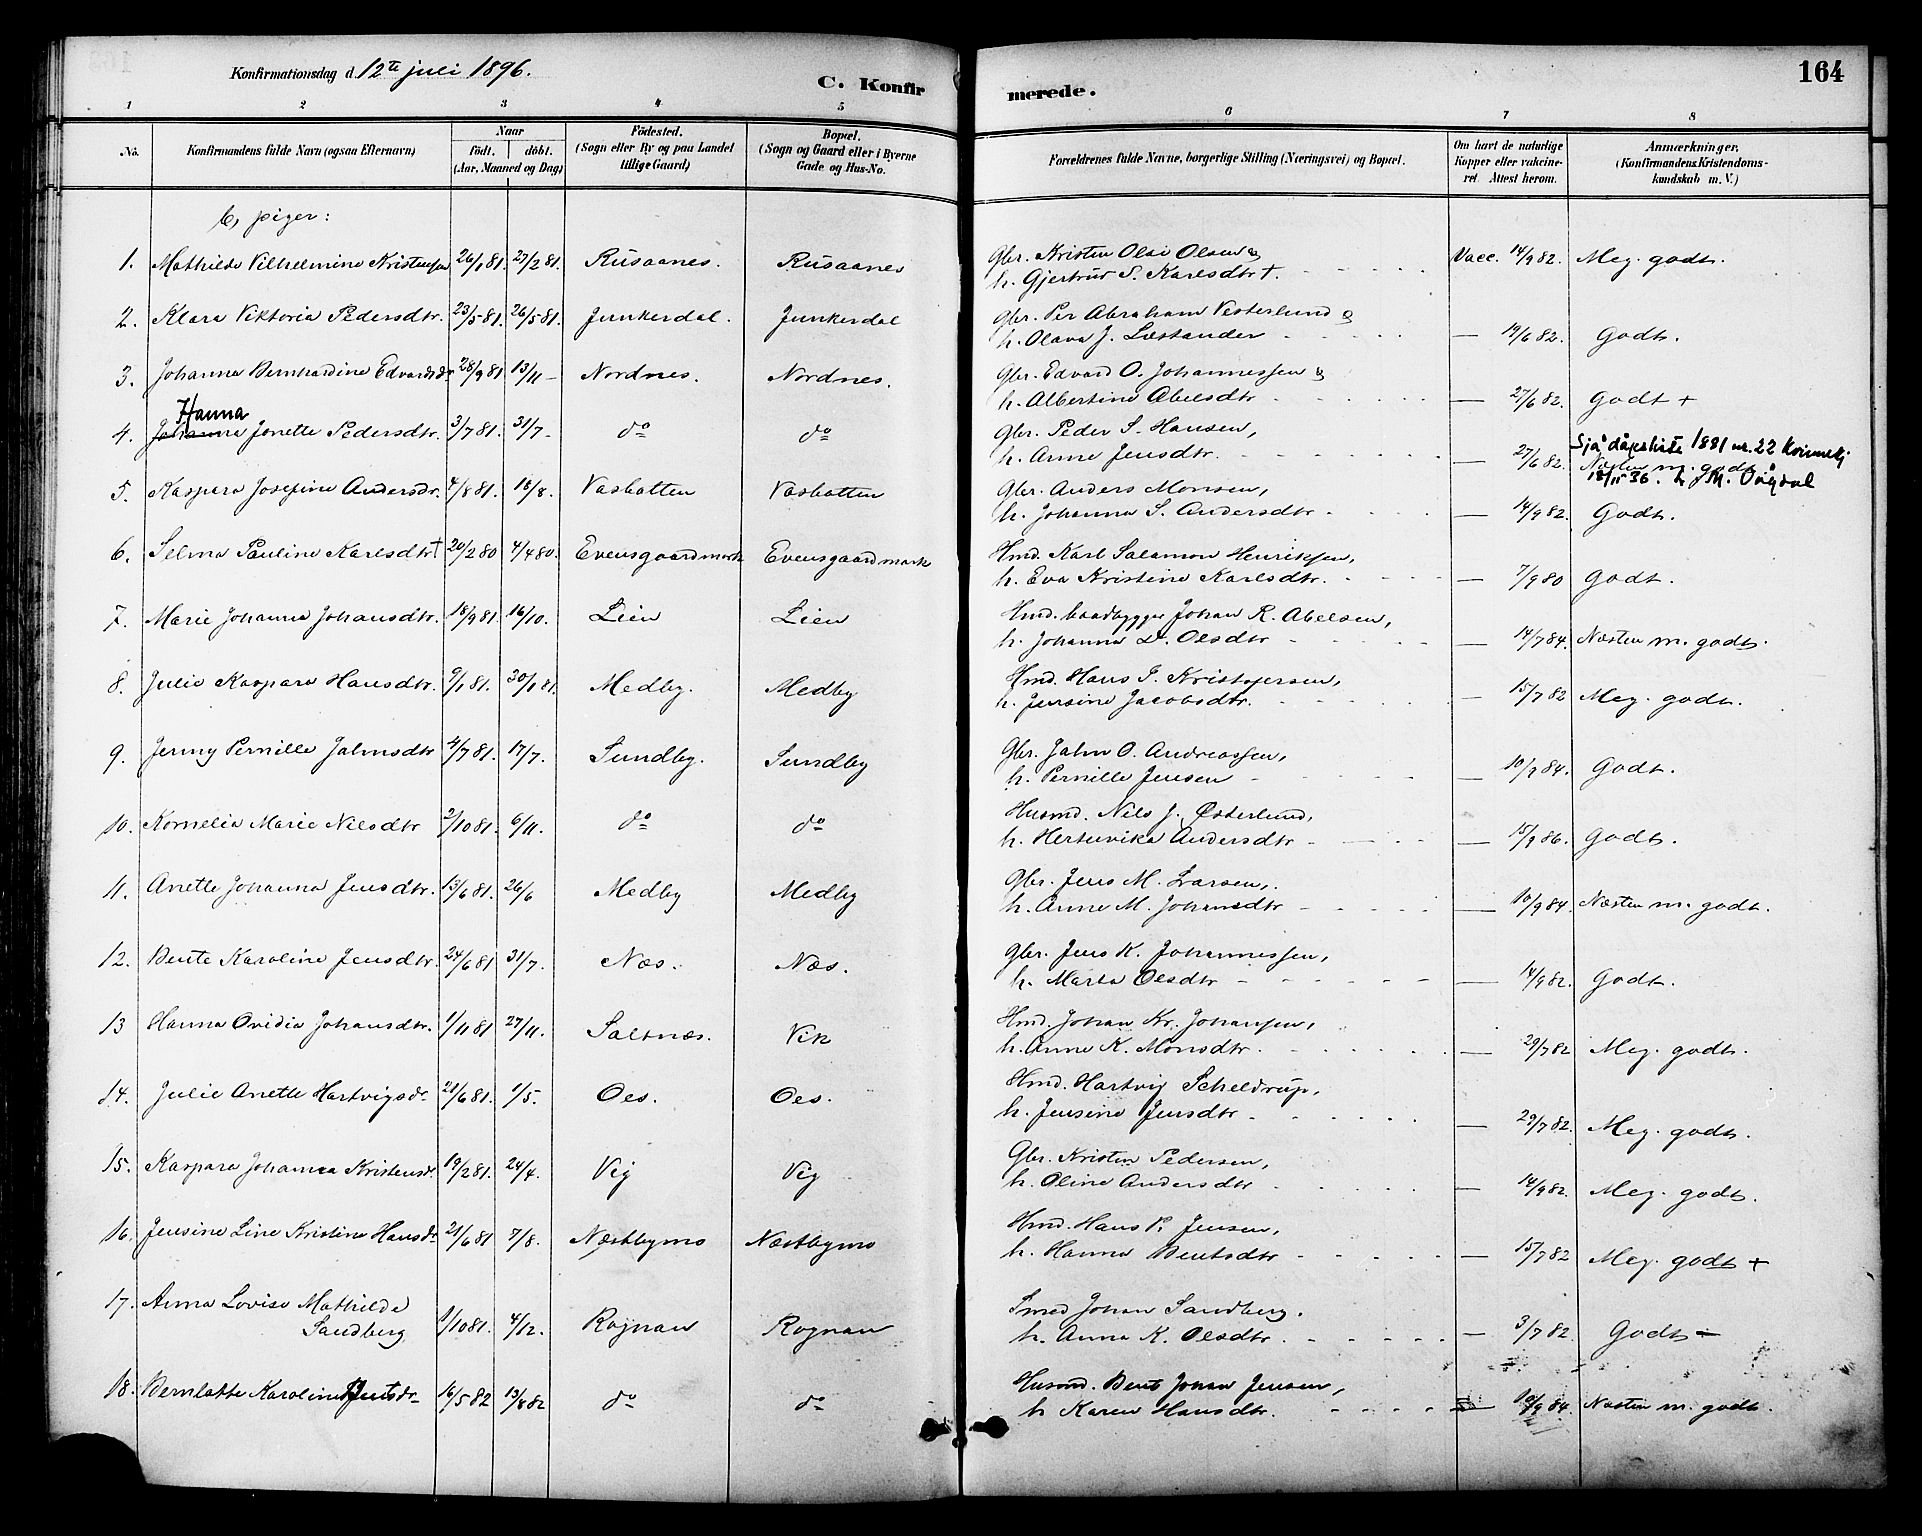 Konfirmationsdag d. 12te juli 1896.
C. Konfirmerede.
164
1 2 3 4 5 6 7 8
No. Konfirmandens fulde Navn (ogsaa Efternavn) Naar födt. döbt. (Aar, Maaned og Dag) Födested. (Sogn eller By og paa Landet tillige Gaard) Bopæl. (Sogn og Gaard eller i Byerne Gade og Hus-No. Forældrenes fulde Navne, borgerlige Stilling (Næringsvei) og Bopæl. Om havt de naturlige Kopper eller vakcineret. Attest herom. Anmærkninger. (Konfirmandens Kristendomskundskab m. V.)
b, piger:
1. Mathilde Vilhelmine Kristensen 26/1 81. 27/2 81. Rusaanes. Rusaanes Gbr. Kristen Olai Olsen &
h. Gjertrud S. Karlsdtr †. Vacc. 14/9 82. Meg. godt.
2. Klara Viktoria Pedersdtr. 23/5 81. 26/5 81. Junkerdal. Junkerdal Gbr. Per Abraham Vesterlund &
h. Olava J. Lestander — 19/6 82. Godt.
3. Johanna Bernhardine Edvardsdr 28/9 81 13/11 - Nordnes. Nordnes. Gbr. Edvard O. Johannessen &
h. Albertine Abelsdtr — 27/6 82. Godt +
Hanna
4. Johanna Jonette Pedersdtr. 3/7 81. 31/7 - do do Gbr. Peder S. Hansen,
h. Anne Jensdtr. — 27/6 82. Næsten m. godt
Sjå dåpsliste 1881 nr. 22 kvinnekj
18/11 36.
5. Kaspara Josefine Andersdr. 4/8 81. 18/8. Vasbotten Vasbotten Gbr. Anders Monsen,
h. Johanna S. Andersdtr — 14/9 82. Godt.
6. Selma Pauline Karlsdtr † 20/2 80 4/4 80. Evensgaardmark Evensgaardmark Hmd. Karl Salamon Henriksen,
h. Eva Kristine Karlsdtr. — 7/9 80 Godt.
7. Marie Johanna Johansdtr. 18/9 81. 16/10. Lien Lien Hmd. baadbygger Johan R. Abelsen,
h. Johanna D. Olsdtr — 14/7 84. Næsten m. godt.
8. Julie Kaspara Hansdtr. 9/1 81. 30/1 81. Medby. Medby Hmd. Hans G. Kristofersen,
h. Jensine Jacobsdtr. — 15/7 82 Meg. godt.
9. Jenny Pernille Jalmsdtr 4/7 81. 17/7. Sundby. Sundby Gbr. Jalm O. Andreassen,
h. Pernille Jensen — 10/9 84. Godt.
10. Kornelia Marie Nilsdtr 2/10 81. 6/11. do do Husmd. Nils J. Østerlund,
h. Hertuvika Andersdtr — 15/9 86. Godt.
11. Anette Johanna Jensdtr. 13/6 81. 26/6 Medby Medby Gbr. Jens M. Larsen,
h. Anne M. Johansdtr — 10/9 84. Næsten m. godt.
12. Bente Karoline Jensdtr. 24/6 81 31/7. Næs. Næs. Gbr. Jens K. Johannessen,
h. Marta Olsdtr — 14/9 82. Godt.
13 Hanna Ovidia Johansdtr. 1/11 81 27/11. Saltnæs. Vik Hmd. Johan Kr. Johansen,
h. Anne K. Monsdtr. — 29/7 82 Meg. godt.
14. Julie Anette Hartvigsdr 21/6 81. 1/5. Oes. Oes. Hmd. Hartvig Scheldrup,
h. Jensine Jensdtr — 29/7 82. Meg. godt.
15. Kaspara Johanna Kristensdr. 19/2 81. 24/4. Vig Vig Gbr. Kristen Pedersen,
h. Oline Andersdtr — 14/9 82. Meg. godt.
16. Jensine Line Kristine Hansdr 21/6 81 7/8. Næstbymo Næstbymo Hmd. Hans P. Jensen,
h. Hanna Bentsdtr — 15/7 82 Meg. godt +
17. Anna Lovise Mathilde
Sandberg 1/10 81. 4/12. Rognan Rognan Smed Johan Sandberg.
h. Anna K. Olsdtr. — 3/7 82. Godt -
18. Bernlotte Karoline Bentsdr 16/5 82 13/8 82 do do Husmd. Bent Johan Jensen,
h Karen Hansdtr. — 10/9 84. Næsten m. godt.